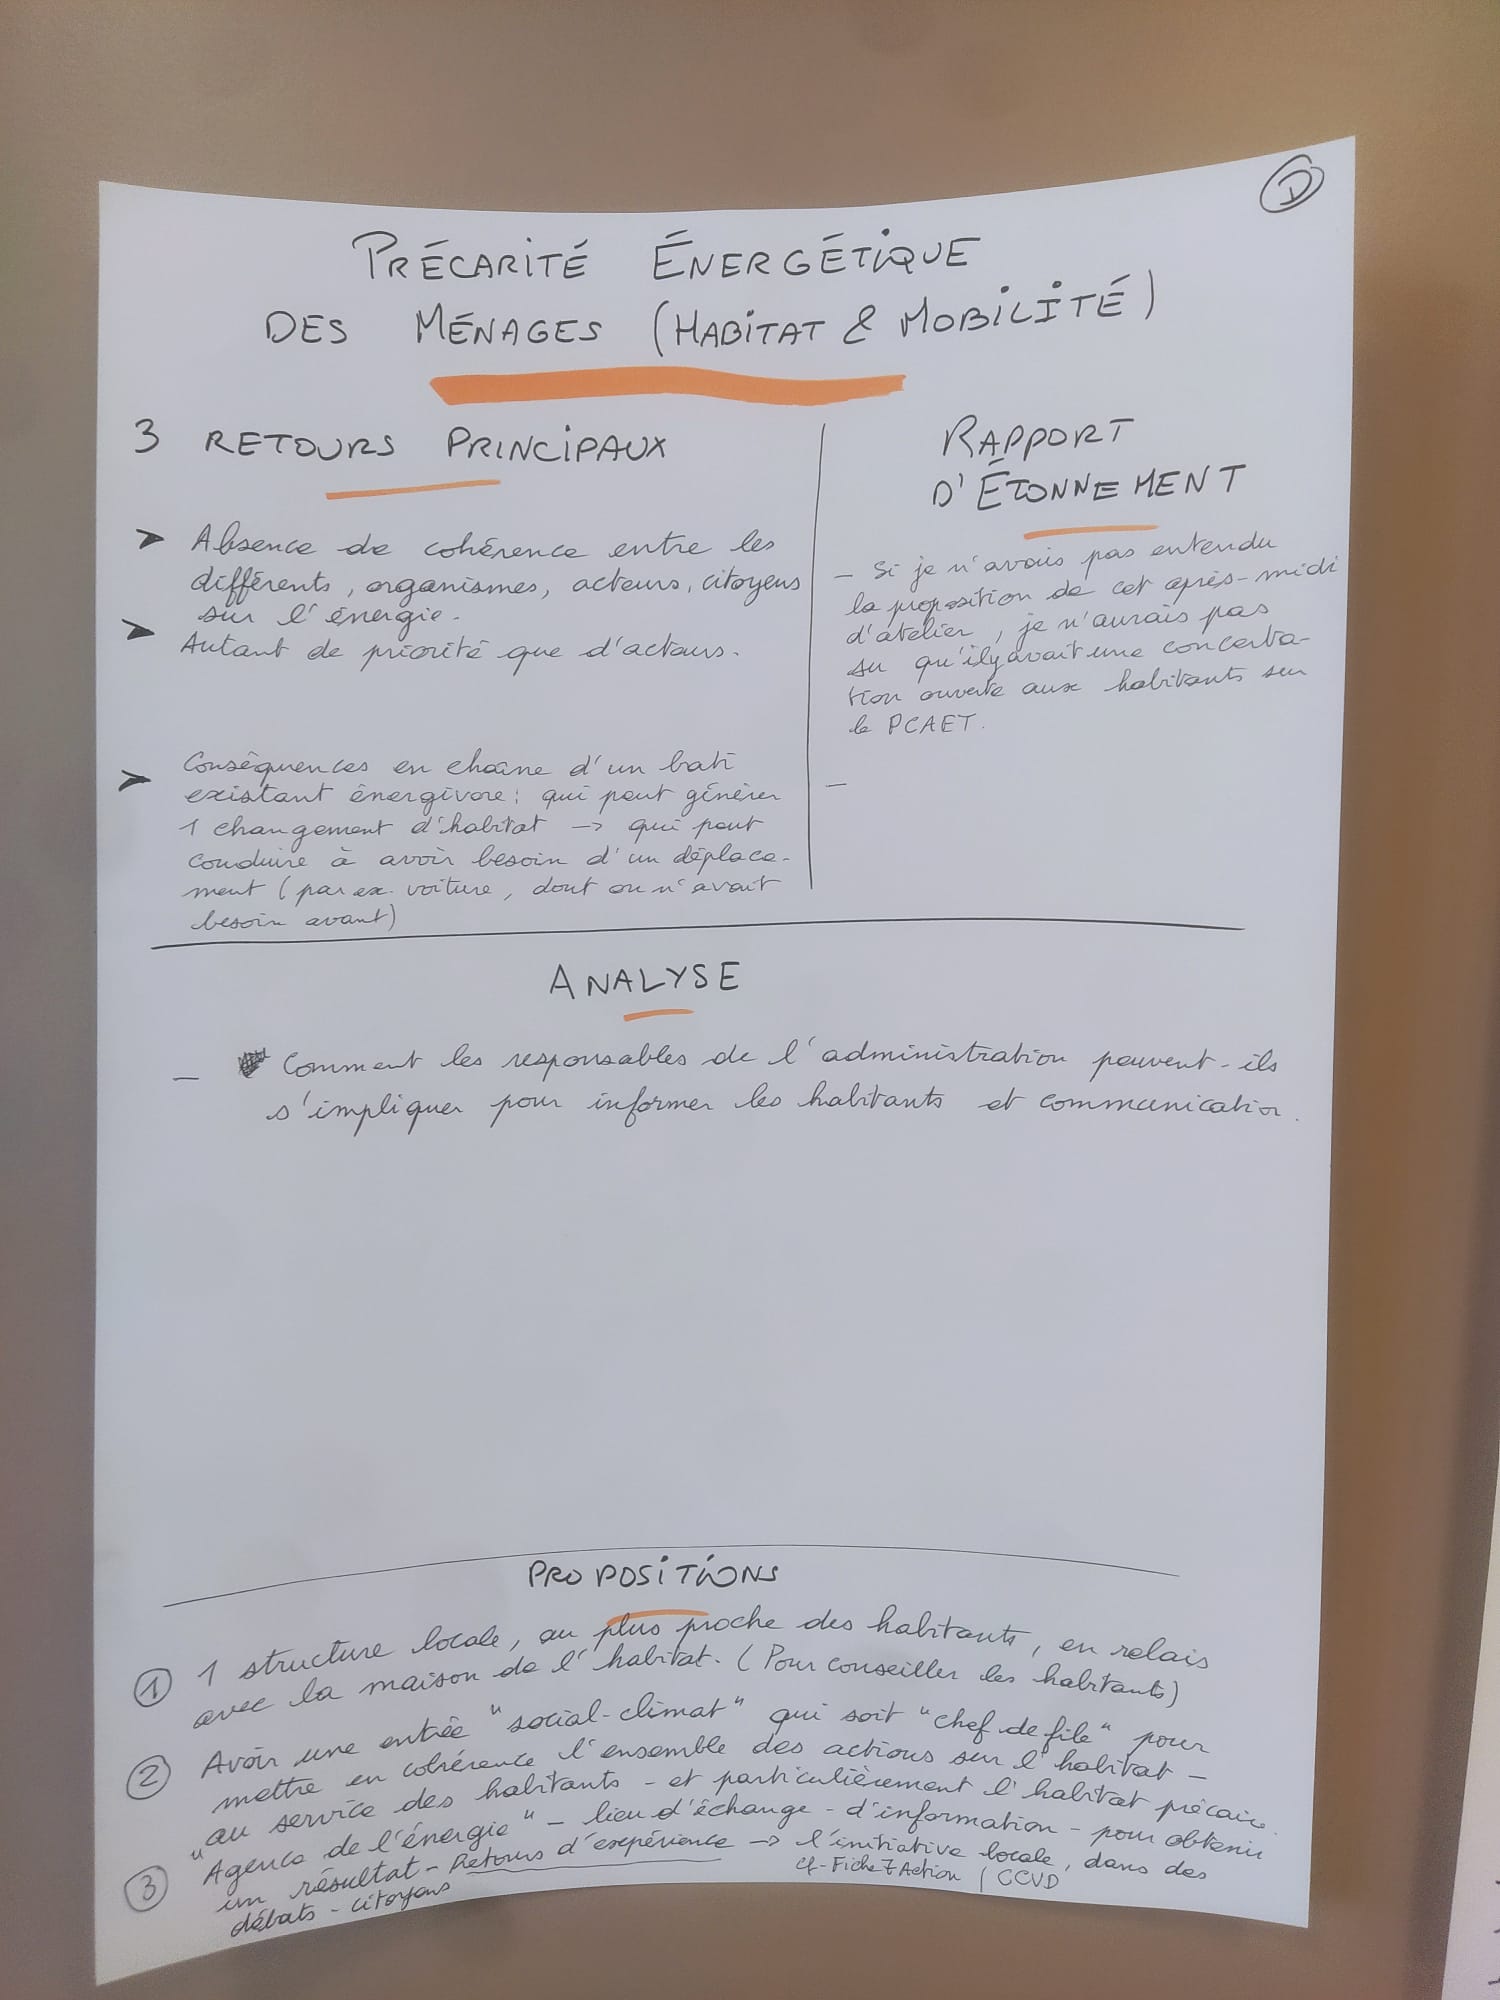 D
PRÉCARITÉ ÉNERGÉTIQUE
DES MÉNAGES (HABITAT & MOBILITÉ)
3 RETOURS PRINCIPAUX
➤ Absence de cohérence entre les
différents, organismes, acteurs, citoyens
sur l'énergie.
➤ Autant de priorité que d'acteurs.
➤ Conséquences en chaîne d'un bati
existant énergivore : qui peut générer
1 changement d'habitat → qui peut
conduire à avoir besoin d'un déplace-
ment (par ex. voiture, dont on n'avait
besoin avant)
RAPPORT
D'ÉTONNEMENT
- Si je n'avais pas entendu
la proposition de cet après-midi
d'atelier, je n'aurais pas
su qu'il y avait une concerta-
tion ouverte aux habitants sur
le PCAET.
-
ANALYSE
- Comment les responsables de l'administration peuvent-ils
s'impliquer pour informer les habitants et communication.
PROPOSITIONS
① 1 structure locale, au plus proche des habitants, en relais
avec la maison de l'habitat. (Pour conseiller les habitants)
② Avoir une entrée "social-climat" qui soit "chef de file" pour
mettre en cohérence l'ensemble des actions sur l'habitat -
au service des habitants - et particulièrement l'habitat précaire.
③ "Agence de l'énergie" - lieu d'échange - d'information - pour obtenir
un résultat - Retours d'expérience → l'initiative locale, dans des
débats - citoyens
cf - Fiche 7 Action / CCVD